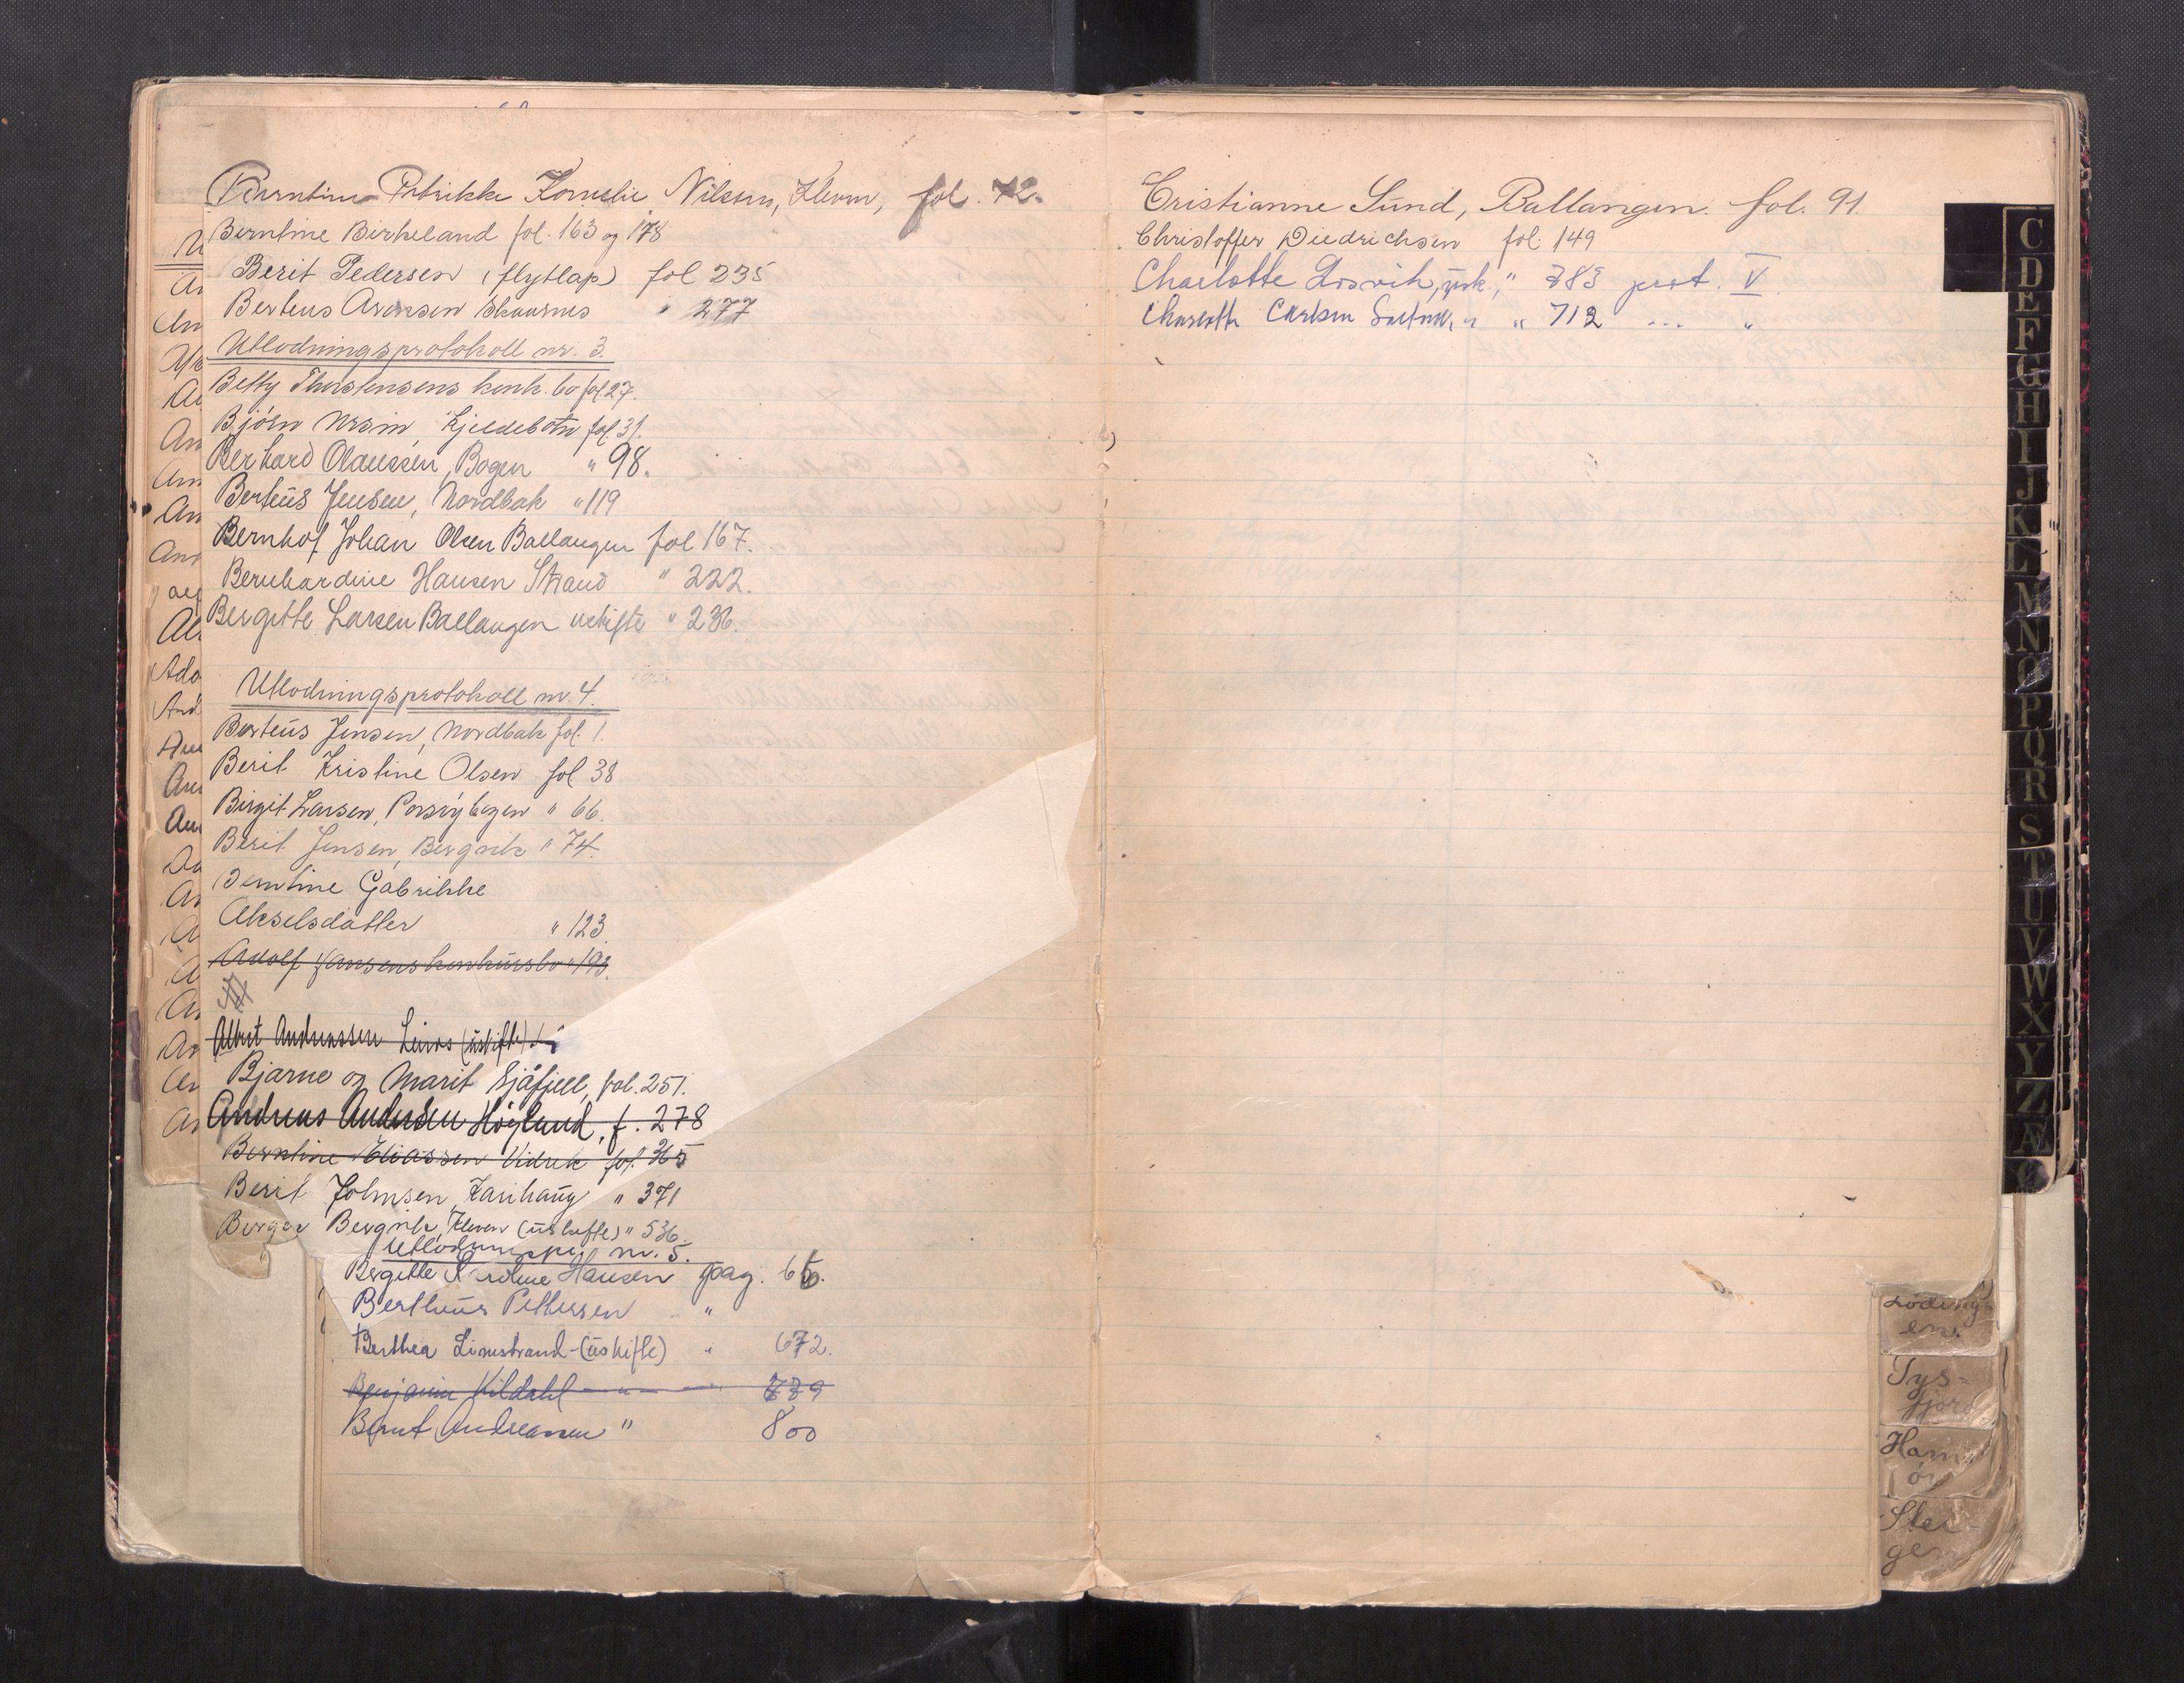 Berntine Petrikke Kornelie Nilsen, Kleven, fol. 72.
Berntine Birkeland fol. 163 og 178
Berit Pedersen (flytlap) fol 235
Berteus Aronsen Skaarnes " 277
Utlodningsprotokoll nr. 3.
Betty Thorstensens konk. bo fol 27.
Bjørn Kjeldebotn fol 31.
Berhard Olaussen, Bogen " 98.
Berteus Jensen, Nordbak " 119
Bernhof Johan Olsen Ballangen fol 167.
Bernhardine Hansen Strand " 222.
Bergitte Larsen Ballangen uskifte " 236.
Utlodningsprotokoll nr. 4.
Berteus Jensen, Nordbak fol. 1.
Berit Kristine Olsen fol 38
Birgit Larsen, " 66.
Berit Jensen, Bergvik " 74.
Berntine Gabrikke
Akselsdatter " 123.
Adolf Jansens konkursbo " 193.
Albert Andreassen (uskifte)
Bjarne og Marit Sjåfjell, fol. 251.
Andreas Andersen Högland, f. 278
Berntine Eliassen Vidrek fol. 365
Berit Johnsen, Karihaug " 371
Birger Bergvik, Kleven (uskifte) " 536.
nr. 5.
Bergitte Karoline Hansen pag. 66.
Bertheus Pettersen "
Berthea Limstrand (uskifte) " 672.
Benjamin Kildahl " 779
Bernt Andreassen " 800
Cristianne Sund, Ballangen. fol. 91.
Christoffer Diedrichsen fol. 149
Charlotte Losvik, usk., " 783 prot. V
Carlsen " " 712 ... "
C
D
E
F
G
H
I
J
K
L
M
N
O
P
Q
R
S
T
U
V
W
X
Y
Z
Æ
Ø
Löding-
en.
Tys-
fjord
Ham-
ör
Stei-
gen